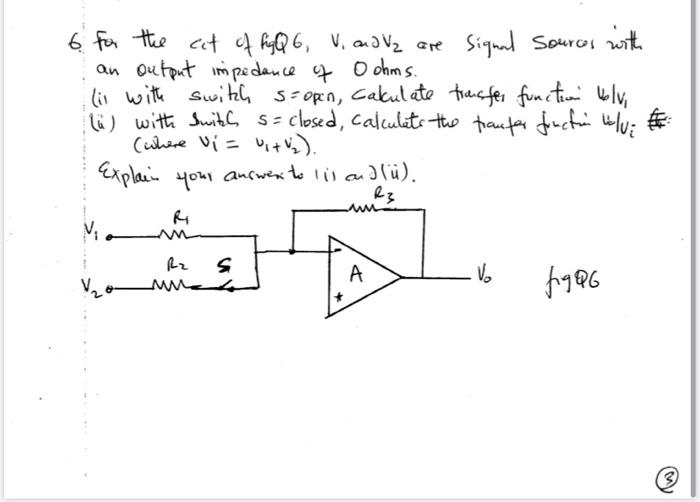 6. For the cct of figQ6, V1 and V2 are signal sources with
an output impedance of 0 ohms.
(i) with switch S=open, calculate transfer function Vo/V1
(ii) with switch S=closed, calculate the transfer function Vo/Vi
(where Vi = V1+V2).
Explain your answer to (i) and (ii).
R3
V1 R1
R2 S
V2
-
A
+
Vo
figQ6
3